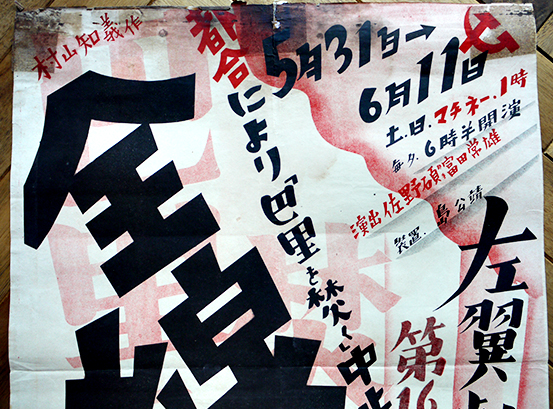 5月31日→
6月11日
土.日.マチネー.1時
毎夕.6時半開演
演出 佐野碩 富田常雄
装置. 島公靖
左翼
第16
都合により「巴里を焚く」中止
村山知義作
全線